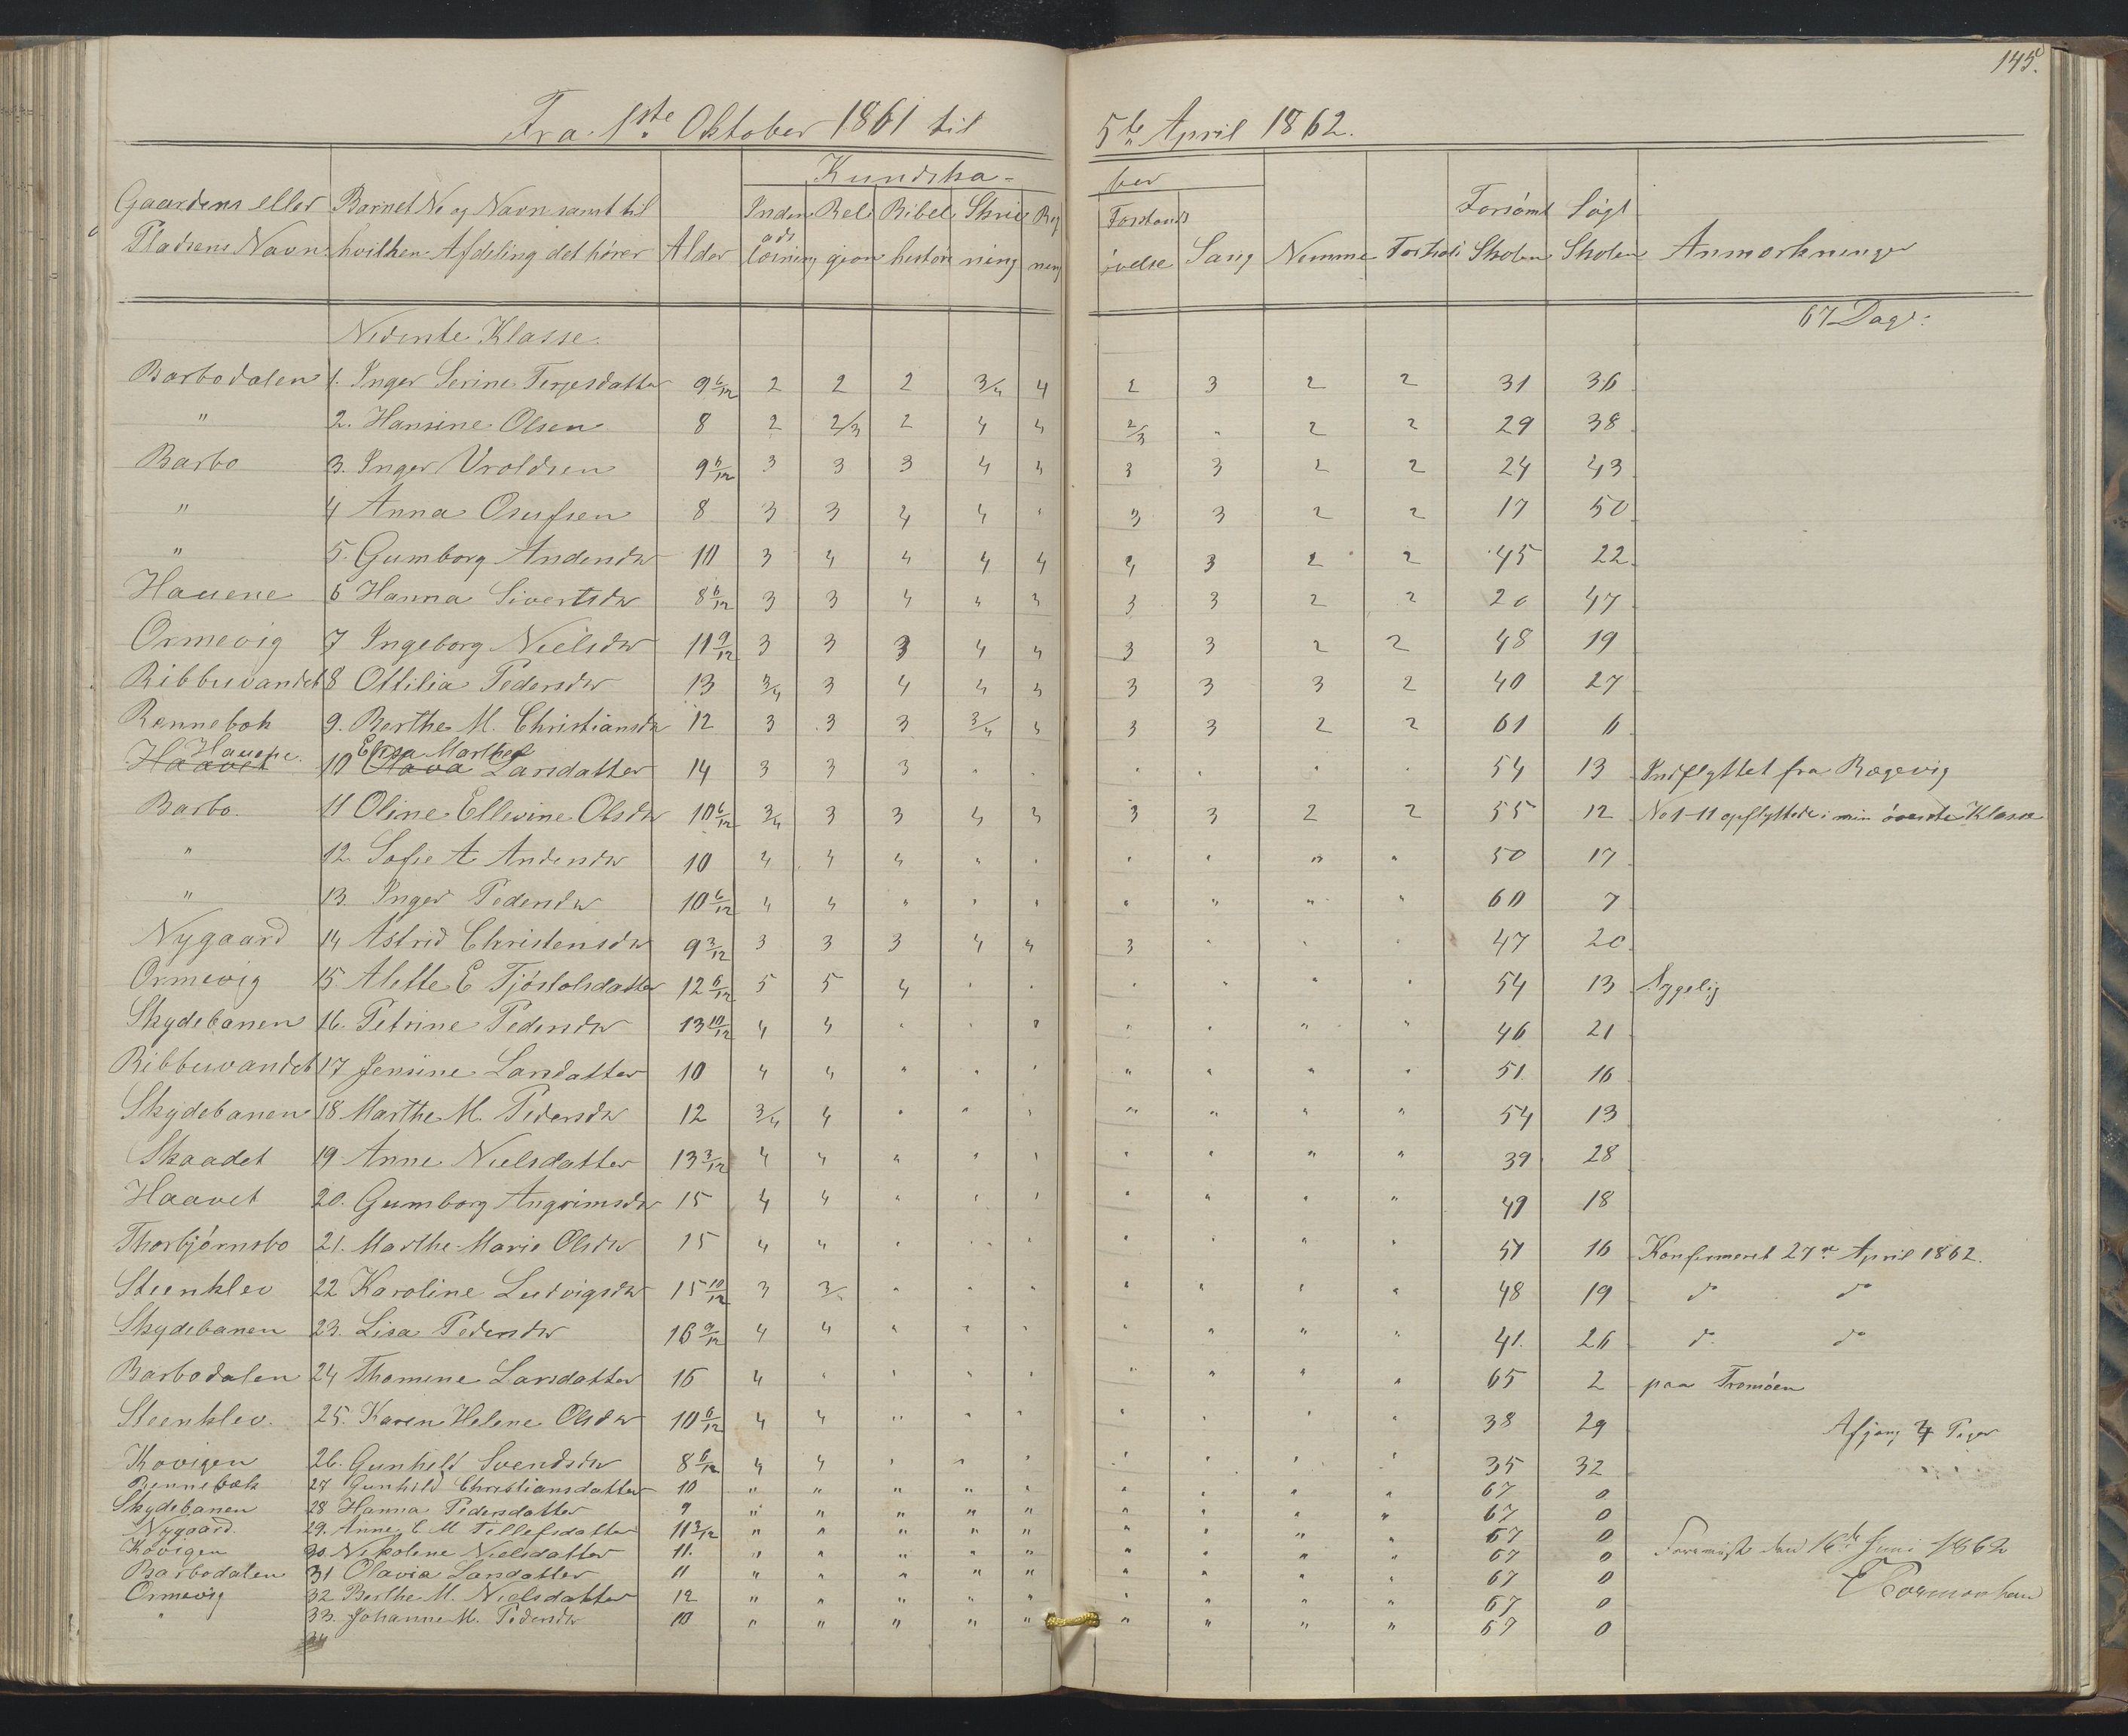 145.
Fra 1ste Oktober 1861 til 5te April 1862.
Kundska-ber
Gaardens eller Barnet No og Navn samt til Inden Reli Bibel Skriv Reg Forstands Forsömt Sögt
Pladsens Navn hvilken Afdeling det hører Alder ads læsning gion histori ning ning övelse Sang Nemme Forhold Skolen Skolen Anmærkninger
Nederste Klasse. 67 Dage:
Barbodalen 1. Inger Serine Terjesdatter 9 6/12 2 2 2 3/4 4 2 3 2 2 31 36
" 2. Hansine Olsen 8 2 2/3 2 4 4 2/3 " 2 2 29 38
Barbo 3. Inger Vroldsen 9 6/12 3 3 3 4 4 3 3 2 2 24 43
" 4 Anna Osufsen 8 3 3 4 4 " 3 3 2 2 17 50
" 5. Gumborg Andersdr 10 3 4 4 4 4 4 3 2 2 45 22
Hauene 6 Hanna Sivertsdr 8 6/12 3 3 4 4 3 3 3 2 2 20 47
Ormevig 7 Ingeborg Nielsdr 11 9/12 3 3 3 4 4 3 3 2 2 48 19
Ribbuvandet 8 Ottilia Pedersdr 13 3/4 3 4 4 3 3 3 3 2 40 27
Rennebek 9. Berthe M. Christiansdr 12 3 3 3 3/4 3 3 3 2 2 61 6
Haavet Hauene. 10 Olava Elisa Marthea Larsdatter 14 3 3 3 " " " " " " 54 13 Indflyttet fra Rægevig
Barbo. 11 Oline Ellevine Olsdr 10 6/12 3/4 3 3 4 3 3 3 2 2 55 12 No 1-11 opflyttede i min överste Klasse
" 12. Sofie A Andersdr 10 4 4 4 " " " " " " 50 17
" 13. Inger Pedersdr 10 6/12 4 4 " " " " " " " 60 7
Nygaard 14 Astrid Christensdr 9 3/12 3 3 3 4 4 3 " " " 47 20
Ormevig 15. Alette E Tjöstolsdatter 12 6/12 5 5 4 " " " " " " 54 13 Sygelig
Skydebanen 16. Petrine Pedersdr 13 10/12 4 4 " " " " " " " 46 21
Ribbuvandet 17 Jensine Larsdatter 10 4 4 " " " " " " " 51 16
Skydebanen 18 Marthe M. Pedersdr 12 3/4 4 " " " " " " " 54 13
Skaadet 19 Anne Nielsdatter 13 3/12 4 4 " " " " " " " 39 28
Haavet 20. Gumborg Angrimsdr 15 4 4 " " " " " " " 49 18
Thorbjörnsbo 21. Marthe Marie Olsdr 15 4 4 " " " " " " " 51 16 Konfirmeret 27de April 1862.
Steenklev 22 Karoline Ludvigsdr 15 10/12 3 3/4 " " " " " " " 48 19 do do
Skydebanen 23. Lisa Pedersdr 16 9/12 4 4 " " " " " " " 41. 26 do do
Barbodalen 24 Thomine Larsdatter 16 4 " " " " " " " " 65 2 paa Tromöen
Steenklev. 25. Karen Helene Olsdr 10 6/12 4 4 " " " " " " " 38 29 Afgang 4 Piger
Kovigen 26. Gunhild Svendsdr 8 6/12 4 4 " " " " " " " 35 32
Rennebæk 27 Gunhild Christiansdatter 10 " " " " " " " " " 67 0
Skydebanen 28 Hanna Pedersdatter 9 " " " " " " " " " 67 0
Nygaard. 29. Anne E M Tellefsdatter 11 3/12 " " " " " " " " " 67 0
Kovigen 30. Nikoline Nielsdatter 11. " " " " " " " " " 67 0 den 16de Juni 1862
Barbodalen 31 Olavia Larsdatter 11 " " " " " " " " " 67 0
Ormevig 32 Berthe M. Nielsdatter 12 " " " " " " " " " 67 0
" 33. Johanne M. Pedersdr 10 " " " " " " " " " 67 0
34